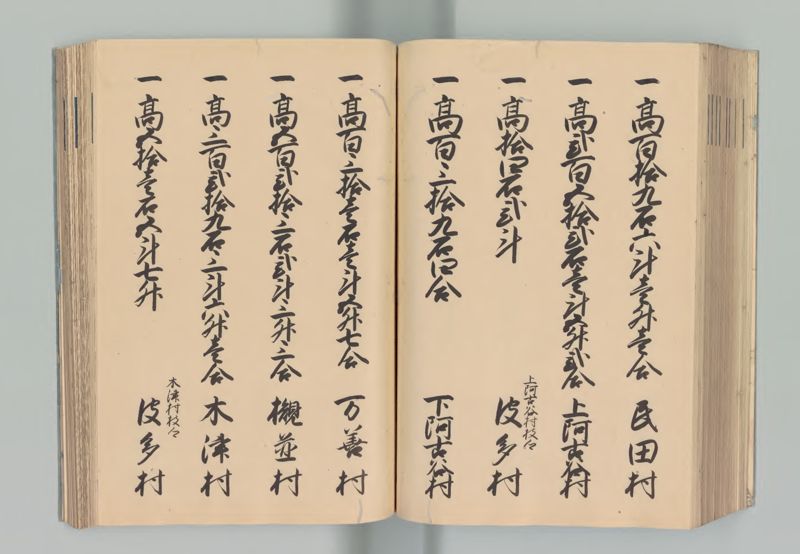 一 高百拾九石六斗壱升壱合 民田村
一 高弐百五拾弐石壱斗五升弐合 上阿古谷村
一 高拾四石弐斗 上阿古谷村枝郷 波多村
一 高百三拾九石四合 下阿古谷村
一 高百三拾壱石壱斗五升七合 万善村
一 高五百弐拾三石弐斗三升三合 槻並村
一 高三百弐拾九石三斗六升壱合 木津村
一 高五拾壱石五斗七升 木津村枝郷 波多村